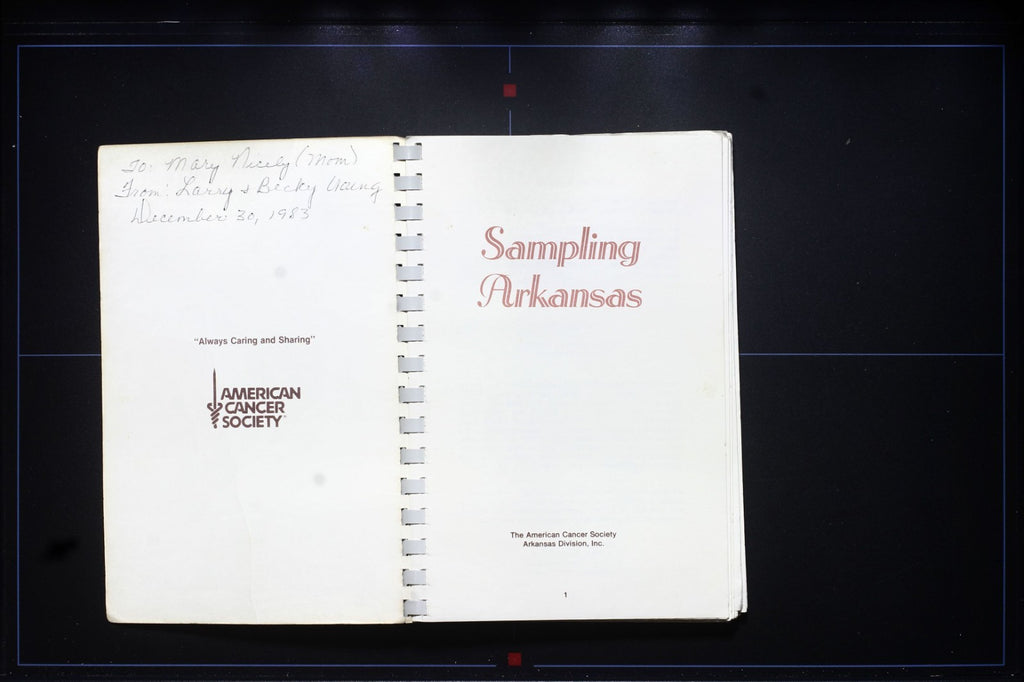 To: Mary Nicely (Mom)
From: Larry & Becky Young
December 30, 1983
"Always Caring and Sharing"
AMERICAN
CANCER
SOCIETY
Sampling
Arkansas
The American Cancer Society
Arkansas Division, Inc.
1